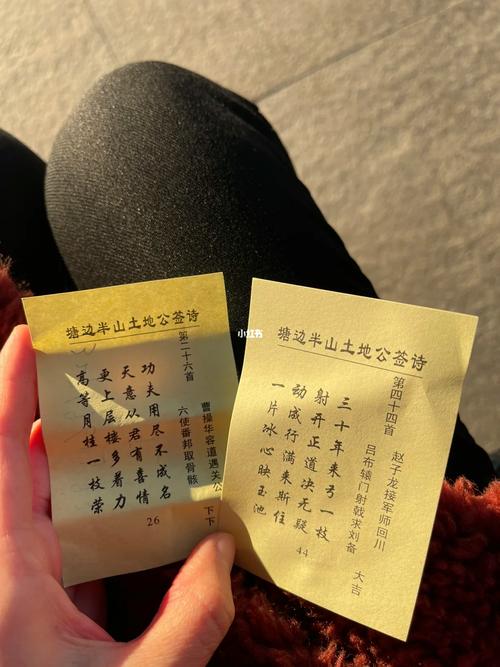 塘边半山土地公签诗
第二十六首
曹操华容道遇关公
六使番邦取骨骸
下下
功夫用尽不成名
天意从君有喜情
更上层楼多着力
高等月桂一枝荣
26
小红书
塘边半山土地公签诗
第四十四首
赵子龙接军师回川
吕布辕门射戟求刘备
大吉
三十年来弓一枝
射开正道决无疑
动成行满来斯住
一片冰心映玉池
44